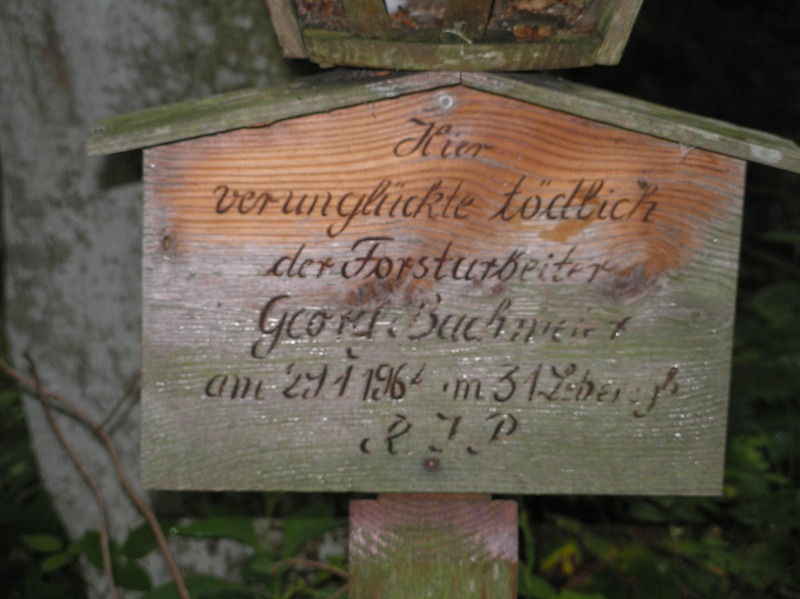 Hier
verunglückte tödlich
der Forstarbeiter
Georg Bachmeier
am 29 1 196 im 31 Lebensj
R I P